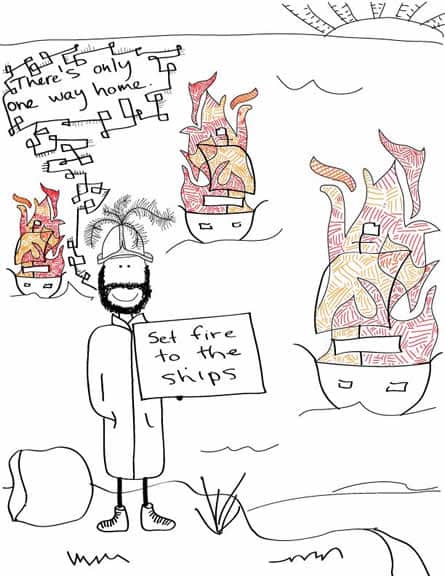 There's only
one way home.
Set fire
to the
ships